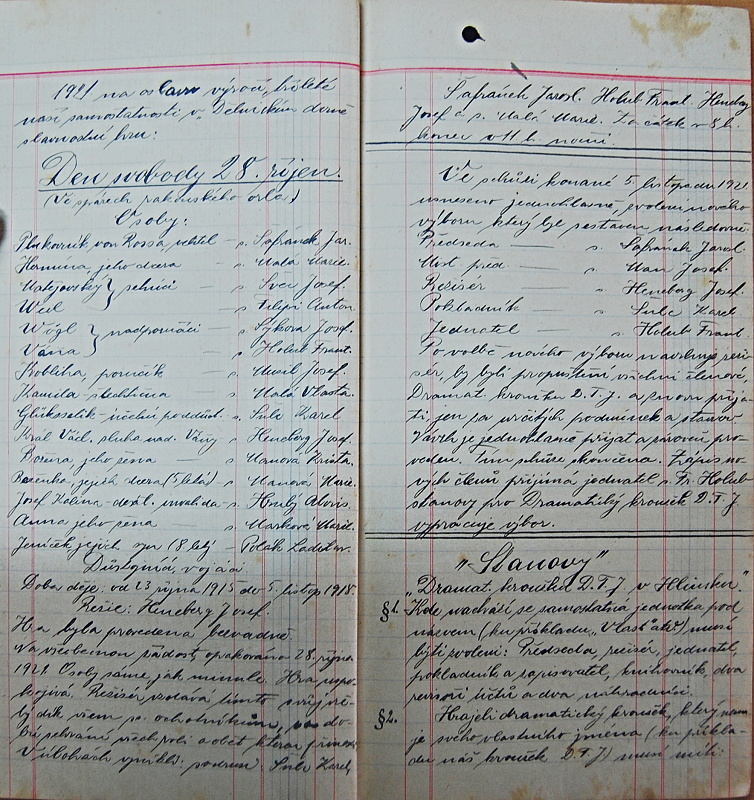 1921 na oslavu výročí, tříleté
naší samostatnosti v "Dělnickém domě
slavnostní hru:
Den svobody 28. říjen.
(Ve spárech rakouského orla)
Osoby:
Plukovník von Rossa, velitel – s. Šafránek Jar.
Hermina, jeho dcera – s. Malá Marie.
setníci – s. Švec Josef.
Weil – s. Filipi Anton
Wögl } nadporučíci – s. Sýkora Josef.
Vána – s. Holub Frant.
Kobliha poručík – s. Josef.
Kamila – šlechtična – s. Malá Vlasta.
účetní poddůst. s. Šule Karel
Král Václ. sluha nad. Vány s. Heneberg Josef.
Božena, jeho žena – s. Manová Krista.
Boženka, jejich dcera (5 letá) – s. Manová Marie.
Josef Kalina – invalida – s. Hrubý Alois
Anna jeho žena – s. Marková Marie.
Jeníček jejich syn (8 letý) – Polák Ladislav.
Důstojníci, vojáci
Doba děje: od 23 října 1915 do 5. listop. 1918.
Režie: Heneberg Josef.
Hra byla provedena bezvadně.
Na všeobecnou žádost opakována 28. října
1921. Osoby samé jak minule. Hra uspo-
kojivá. Režisér vzdává tímto svůj vře-
lý dík všem ss. ochotníkům, za do-
brý sehrání všech rolí a oběť kterou přinesli
V úlohách vynikli: s. Šule Karel,
Šafránek Jarosl. Holub Frant. Heneberg
Josef a s. Malá Marie. Začátek v 8 h.
konec v 11 h. noční.
Ve schůzi konané 5. listopadu 1921
usneseno jednohlasně, zvolení nového
výboru který byl sestaven následovně.
Předseda – s. Šafránek Jarosl.
Míst. před. – s. Man Josef.
Režisér – s. Heneberg Josef.
Pokladník – s. Šule Karel
Jednatel – s. Holub Frant.
Po volbě nového výboru navrhuje reži-
sér, by byli propuštěni všichni členové
Dramat. kroužku D.T.J. a znovu přija-
ti jen za určitých podmínek a stanov.
Návrh je jednohlasně přijat a zároveň pro-
veden. Tím schůze skončena. Zápis no-
vých členů přijímá jednatel s. Fr. Holub
stanovy pro Dramatický kroužek D.T.J.
vypracuje výbor.
"Stanovy"
"Dramat. kroužku D.T.J. v Hlinsku."
§1. Kde nachází se samostatná jednotka pod
názvem (ku příkladu "Vlast" atd) musí
býti zvoleni: Předseda, režisér, jednatel,
pokladník a zapisovatel, knihovník, dva
revisoři účtů a dva náhradníci.
§2. Hraje-li dramatický kroužek, který nemá
je svého vlastního jména (ku příkla-
du náš kroužek D.T.J) musí míti: